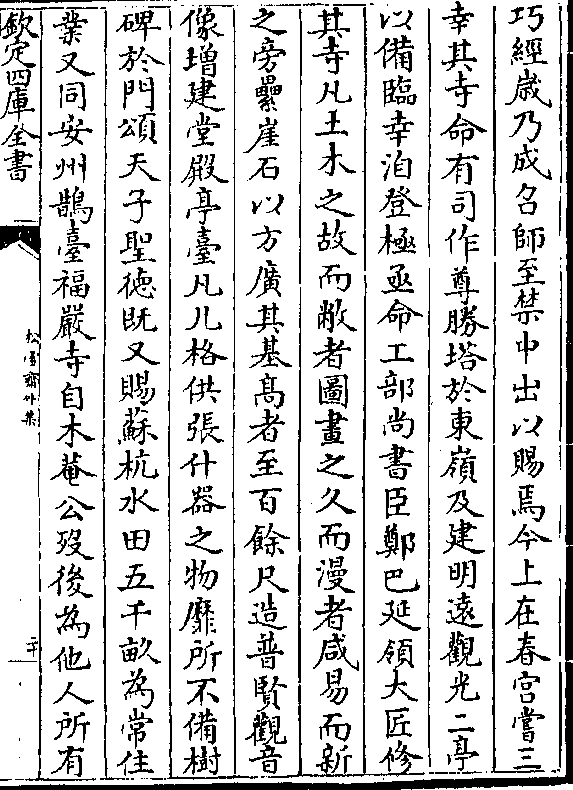 巧經歲乃成名師至禁中出以賜焉今上在春宮嘗三
幸其寺命有司作尊勝塔於東嶺及建明遠觀光二亭
以備臨幸洎登極亟命工部尚書臣鄭巴延領大匠修
其寺凡土木之故而敝者圖畫之久而漫者咸易而新
之旁纍崖石以方廣其基高者至百餘尺造普賢觀音
像增建堂殿亭臺凡几格供張什器之物靡所不備樹
碑於門頌天子聖德既又賜蘇杭水田五千畝為常住
業又同安州鵲臺福嚴寺自木菴公歿後為他人所有
欽定四庫全書
松雪齋外集
二十